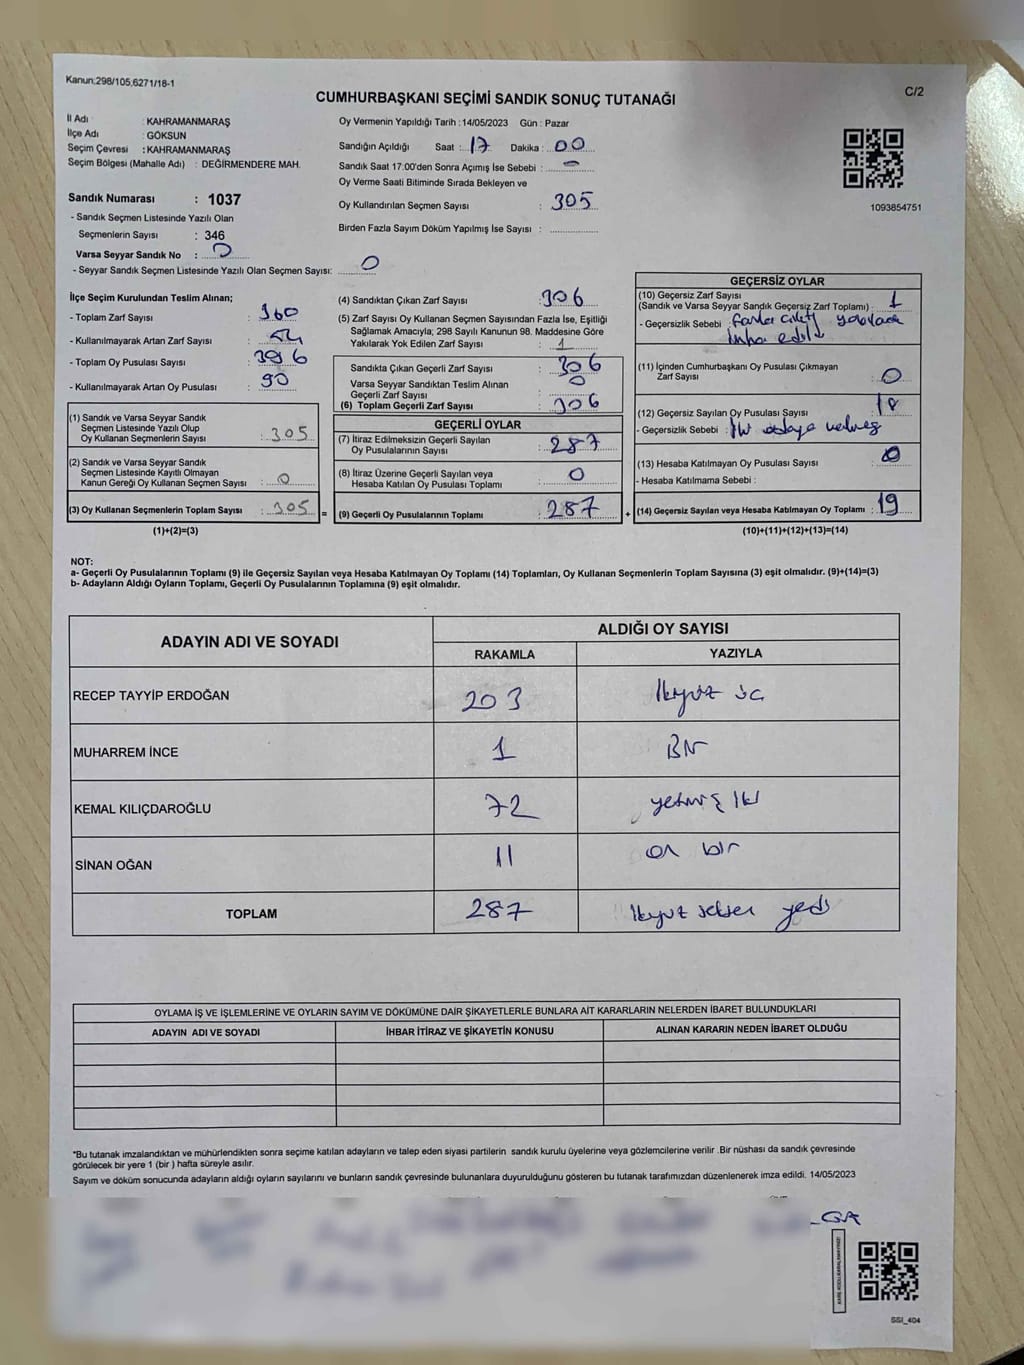 Kanun:298/105,6271/18-1
C/2
CUMHURBAŞKANI SEÇİMİ SANDIK SONUÇ TUTANAĞI
İl Adı : KAHRAMANMARAŞ
İlçe Adı : GÖKSUN
Seçim Çevresi : KAHRAMANMARAŞ
Seçim Bölgesi (Mahalle Adı) : DEĞİRMENDERE MAH.
Sandık Numarası : 1037
- Sandık Seçmen Listesinde Yazılı Olan
Seçmenlerin Sayısı : 346
Varsa Seyyar Sandık No : 0
- Seyyar Sandık Seçmen Listesinde Yazılı Olan Seçmen Sayısı: 0
Oy Vermenin Yapıldığı Tarih : 14/05/2023 Gün : Pazar
Sandığın Açıldığı Saat : 17 Dakika : 00
Sandık Saat 17:00'den Sonra Açımış İse Sebebi : -
Oy Verme Saati Bitiminde Sırada Bekleyen ve
Oy Kullandırılan Seçmen Sayısı : 305
Birden Fazla Sayım Döküm Yapılmış İse Sayısı :
1093854751
İlçe Seçim Kurulundan Teslim Alınan;
- Toplam Zarf Sayısı : 360
- Kullanılmayarak Artan Zarf Sayısı : 54
- Toplam Oy Pusulası Sayısı : 396
- Kullanılmayarak Artan Oy Pusulası : 90
(1) Sandık ve Varsa Seyyar Sandık
Seçmen Listesinde Yazılı Olup
Oy Kullanan Seçmenlerin Sayısı : 305
(2) Sandık ve Varsa Seyyar Sandık
Seçmen Listesinde Kayıtlı Olmayan
Kanun Gereği Oy Kullanan Seçmen Sayısı : 0
(3) Oy Kullanan Seçmenlerin Toplam Sayısı : 305 =
(1)+(2)=(3)
(4) Sandıktan Çıkan Zarf Sayısı : 306
(5) Zarf Sayısı Oy Kullanan Seçmen Sayısından Fazla İse, Eşitliği
Sağlamak Amacıyla; 298 Sayılı Kanunun 98. Maddesine Göre
Yakılarak Yok Edilen Zarf Sayısı : 1
Sandıkta Çıkan Geçerli Zarf Sayısı : 306
Varsa Seyyar Sandıktan Teslim Alınan
Geçerli Zarf Sayısı : 0
(6) Toplam Geçerli Zarf Sayısı : 306
GEÇERLİ OYLAR
(7) İtiraz Edilmeksizin Geçerli Sayılan
Oy Pusulalarının Sayısı : 287
(8) İtiraz Üzerine Geçerli Sayılan veya
Hesaba Katılan Oy Pusulası Toplamı : 0
(9) Geçerli Oy Pusulalarının Toplamı : 287 +
GEÇERSİZ OYLAR
(10) Geçersiz Zarf Sayısı
(Sandık ve Varsa Seyyar Sandık Geçersiz Zarf Toplamı) : 1
- Geçersizlik Sebebi : fazla çıktı yakılarak
imha edildi
(11) İçinden Cumhurbaşkanı Oy Pusulası Çıkmayan
Zarf Sayısı : 0
(12) Geçersiz Sayılan Oy Pusulası Sayısı : 18
- Geçersizlik Sebebi : iki adaya
(13) Hesaba Katılmayan Oy Pusulası Sayısı : 0
- Hesaba Katılmama Sebebi :
(14) Geçersiz Sayılan veya Hesaba Katılmayan Oy Toplamı : 19
(10)+(11)+(12)+(13)=(14)
NOT:
a- Geçerli Oy Pusulalarının Toplamı (9) ile Geçersiz Sayılan veya Hesaba Katılmayan Oy Toplamı (14) Toplamları, Oy Kullanan Seçmenlerin Toplam Sayısına (3) eşit olmalıdır. (9)+(14)=(3)
b- Adayların Aldığı Oyların Toplamı, Geçerli Oy Pusulalarının Toplamına (9) eşit olmalıdır.
ADAYIN ADI VE SOYADI
ALDIĞI OY SAYISI
RAKAMLA YAZIYLA
RECEP TAYYİP ERDOĞAN 203 İkiyüz üç
MUHARREM İNCE 1 Bir
KEMAL KILIÇDAROĞLU 72 yetmiş iki
SİNAN OĞAN 11 on bir
TOPLAM 287 İkiyüz seksen yedi
OYLAMA İŞ VE İŞLEMLERİNE VE OYLARIN SAYIM VE DÖKÜMÜNE DAİR ŞİKAYETLERLE BUNLARA AİT KARARLARIN NELERDEN İBARET BULUNDUKLARI
ADAYIN ADI VE SOYADI İHBAR İTİRAZ VE ŞİKAYETİN KONUSU ALINAN KARARIN NEDEN İBARET OLDUĞU
*Bu tutanak imzalandıktan ve mühürlendikten sonra seçime katılan adayların ve talep eden siyasi partilerin sandık kurulu üyelerine veya gözlemcilerine verilir .Bir nüshası da sandık çevresinde
görülecek bir yere 1 (bir ) hafta süreyle asılır.
Sayım ve döküm sonucunda adayların aldığı oyların sayılarını ve bunların sandık çevresinde bulunanlara duyurulduğunu gösteren bu tutanak tarafımızdan düzenlenerek imza edildi. 14/05/2023
SSI_404